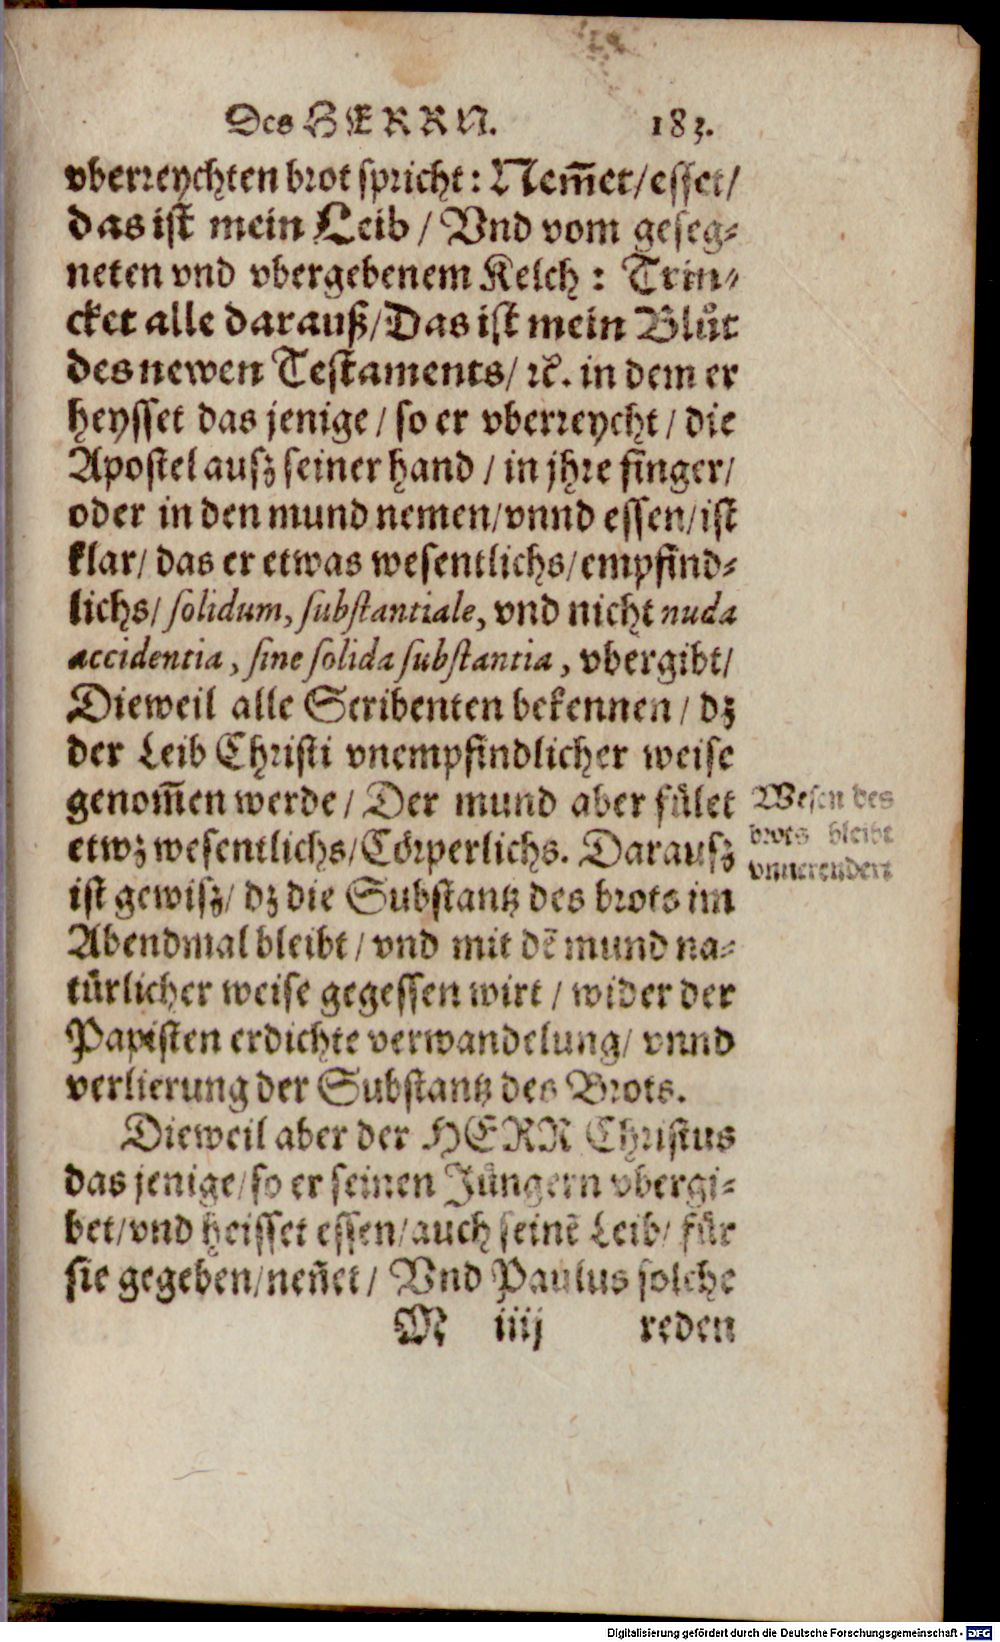 Des HERRN. 183.
vberreychten brot spricht: Nem̅et/esset/
das ist mein Leib / Vnd vom geseg⸗
neten vnd vbergebenem Kelch: Trin⸗
cket alle darauß/Das ist mein Blůt
des newen Testaments/ ꝛc. in dem er
heysset das jenige / so er vberreycht / die
Apostel ausz seiner hand / in jhre finger/
oder in den mund nemen/vnnd essen/ist
klar/ das er etwas wesentlichs/empfind⸗
lichs/ solidum, substantiale, vnd nicht nuda
accidentia, sine solida substantia, vbergibt/
Dieweil alle Scribenten bekennen / dz
der Leib Christi vnempfindlicher weise
genom̅en werde / Der mund aber fůlet
etwz wesentlichs/Cörperlichs. Darausz
ist gewisz/ dz die Substantz des brots im
Abendmal bleibt / vnd mit dē mund na⸗
türlicher weise gegessen wirt / wider der
Papisten erdichte verwandelung/ vnnd
verlierung der Substantz des Brots.
Wesen des
brots bleibt
vnuerendert
Dieweil aber der HERR Christus
das jenige/so er seinen Jüngern vbergi⸗
bet/vnd heisset essen/auch seinē Leib/ für
sie gegeben/nen̅et / Vnd Paulus solche
M iiij reden
Digitalisierung gefördert durch die Deutsche Forschungsgemeinschaft - DFG